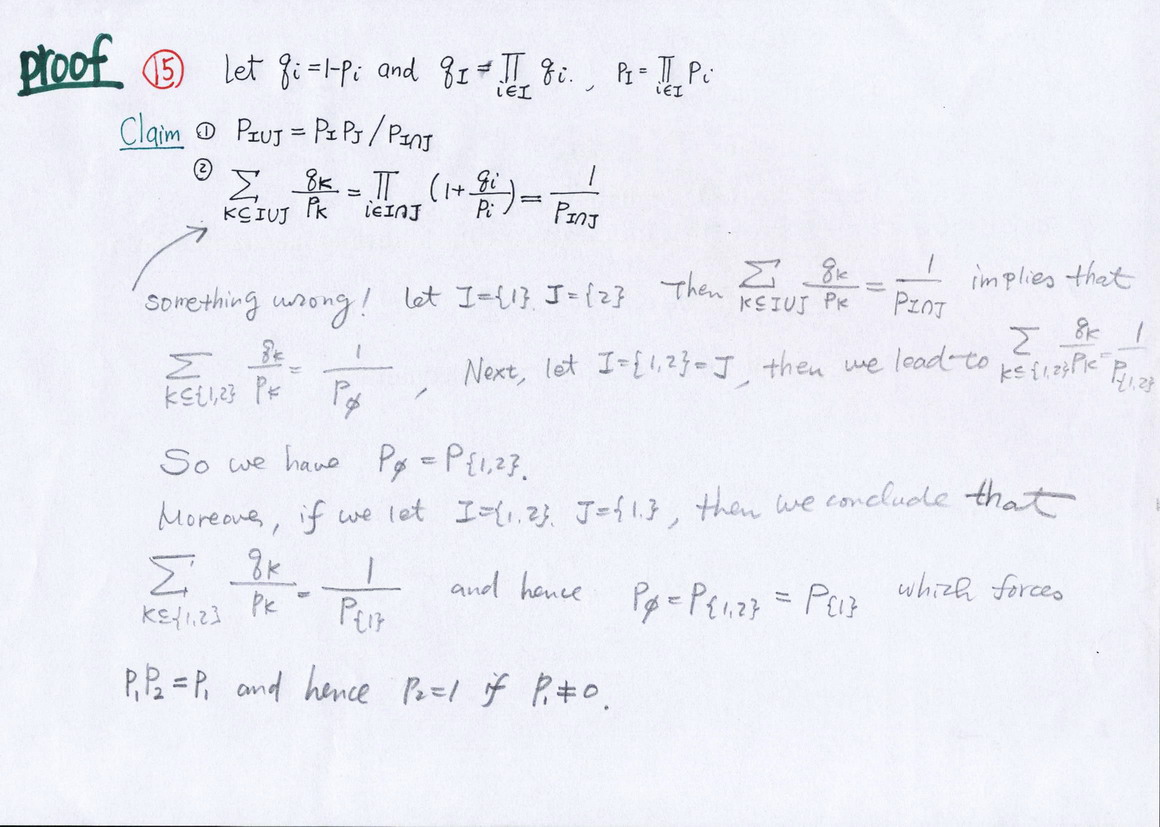 proof ⑮ Let qi = 1-pi and qI = ∏i∈I qi. , PI = ∏i∈I Pi
Claim ① PI∪J = PI PJ / PI∩J
② ∑K⊆I∪J qK/PK = ∏i∈I∩J (1 + qi/Pi) = 1/PI∩J
something wrong! Let I={1}. J={2} Then ∑K⊆I∪J qK/PK = 1/PI∩J implies that
∑K⊆{1,2} qK/PK = 1/Pø , Next, let I={1,2}=J, then we lead to ∑K⊆{1,2} qK/PK = 1/P{1,2}
So we have Pø = P{1,2}.
Moreover, if we let I={1,2}. J={1.}, then we conclude that
∑K⊆{1,2} qK/PK = 1/P{1} and hence Pø = P{1,2} = P{1} which forces
P1P2 = P1 and hence P2=1 if P1≠0.